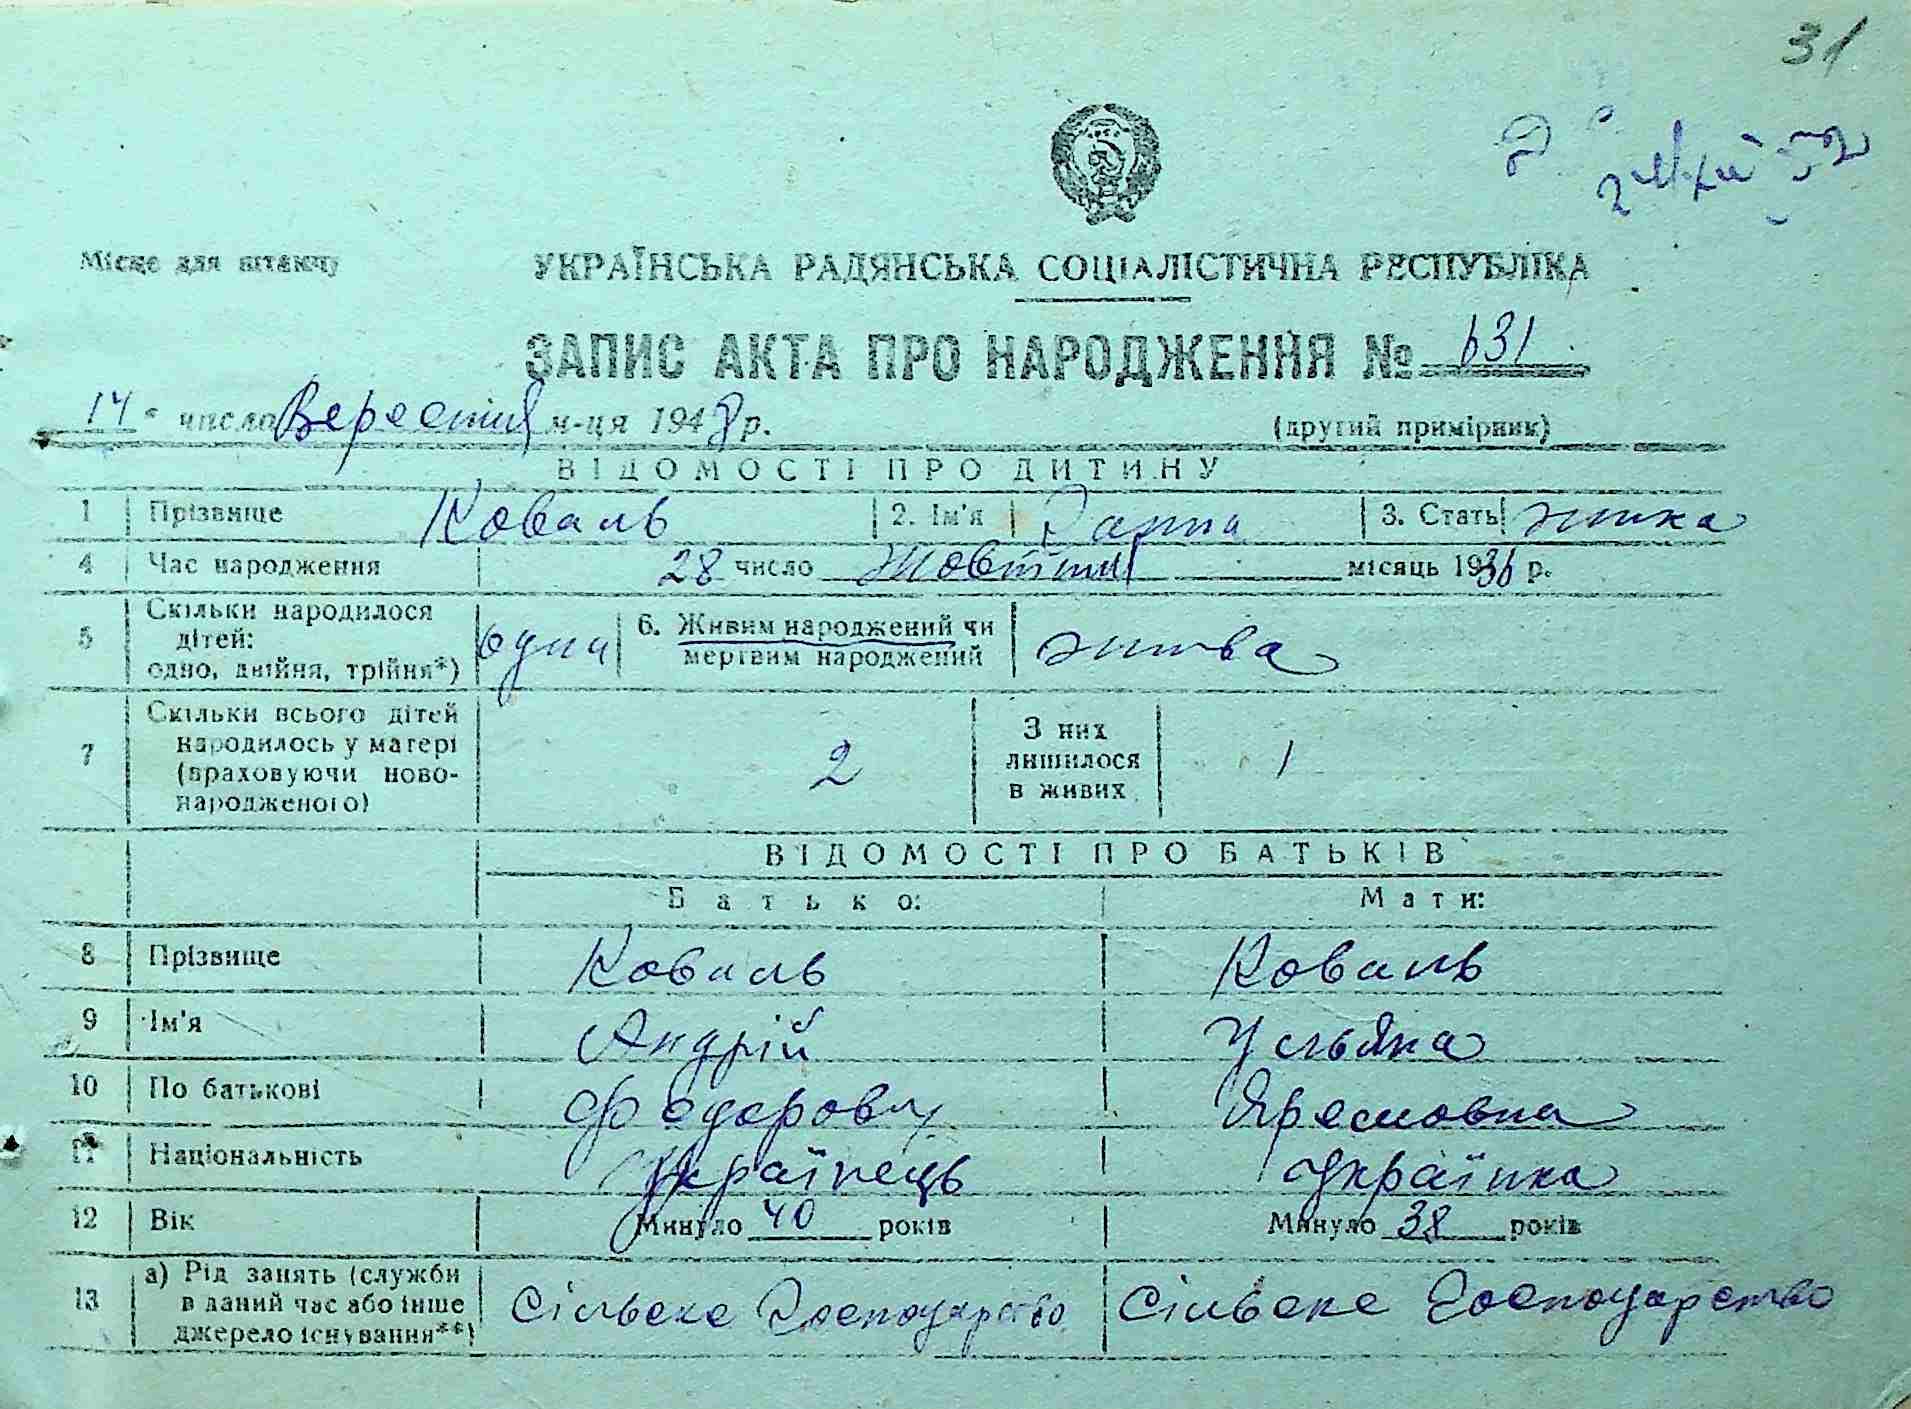 31
Місце для штампу
УКРАЇНСЬКА РАДЯНСЬКА СОЦІАЛІСТИЧНА РЕСПУБЛІКА
ЗАПИС АКТА ПРО НАРОДЖЕННЯ № 631
14 число Вересния м-ця 1948 р. (другий примірник)
ВІДОМОСТІ ПРО ДИТИНУ
1 Прізвище Коваль 2. Ім'я Ганна 3. Стать жінка
4 Час народження 28 число Жовтния місяць 1936 р.
5 Скільки народилося дітей: одно, двійня, трійня*) одна 6. Живим народжений чи мертвим народжений жива
7 Скільки всього дітей народилось у матері (враховуючи новонародженого) 2 З них лишилося в живих 1
ВІДОМОСТІ ПРО БАТЬКІВ
Батько: Мати:
8 Прізвище Коваль Коваль
9 Ім'я Андрій Ульяна
10 По батькові Федорович Яремовна
11 Національність Українець Українка
12 Вік Минуло 40 років Минуло 38 років
13 а) Рід занять (служби в даний час або інше джерело існування**) Сільське Господарство Сільське Господарство